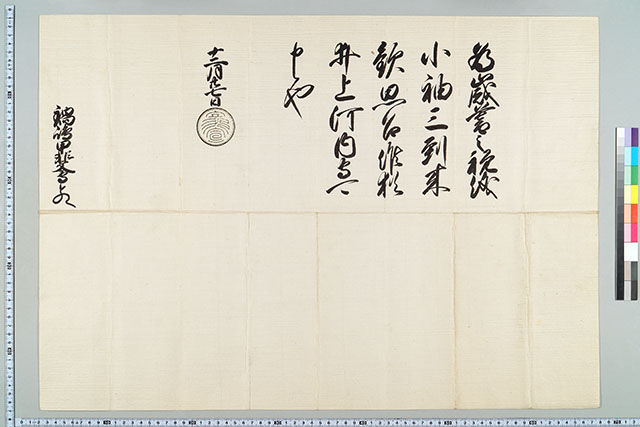 為歳暮之祝儀
小袖三到来
歓思召候猶
井上河内守可
申也
十二月廿七日
鍋嶋甲斐守とのへ